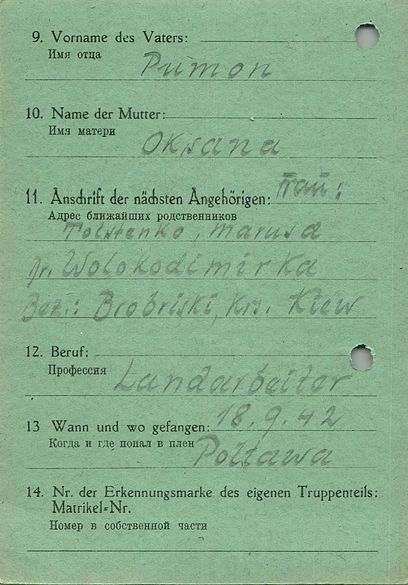 9. Vorname des Vaters:
Имя отца
Pumon
10. Name der Mutter:
Имя матери
Oksana
11. Anschrift der nächsten Angehörigen: Frau:
Адрес ближайших родственников
Tolstenko, Marusa
Wolokodimirka
Bez.: Brobriski, Krs. Kiew
12. Beruf:
Профессия
Landarbeiter
13 Wann und wo gefangen: 18.9.42
Когда и где попал в плен
Poltawa
14. Nr. der Erkennungsmarke des eigenen Truppenteils:
Matrikel-Nr.
Номер в собственной части